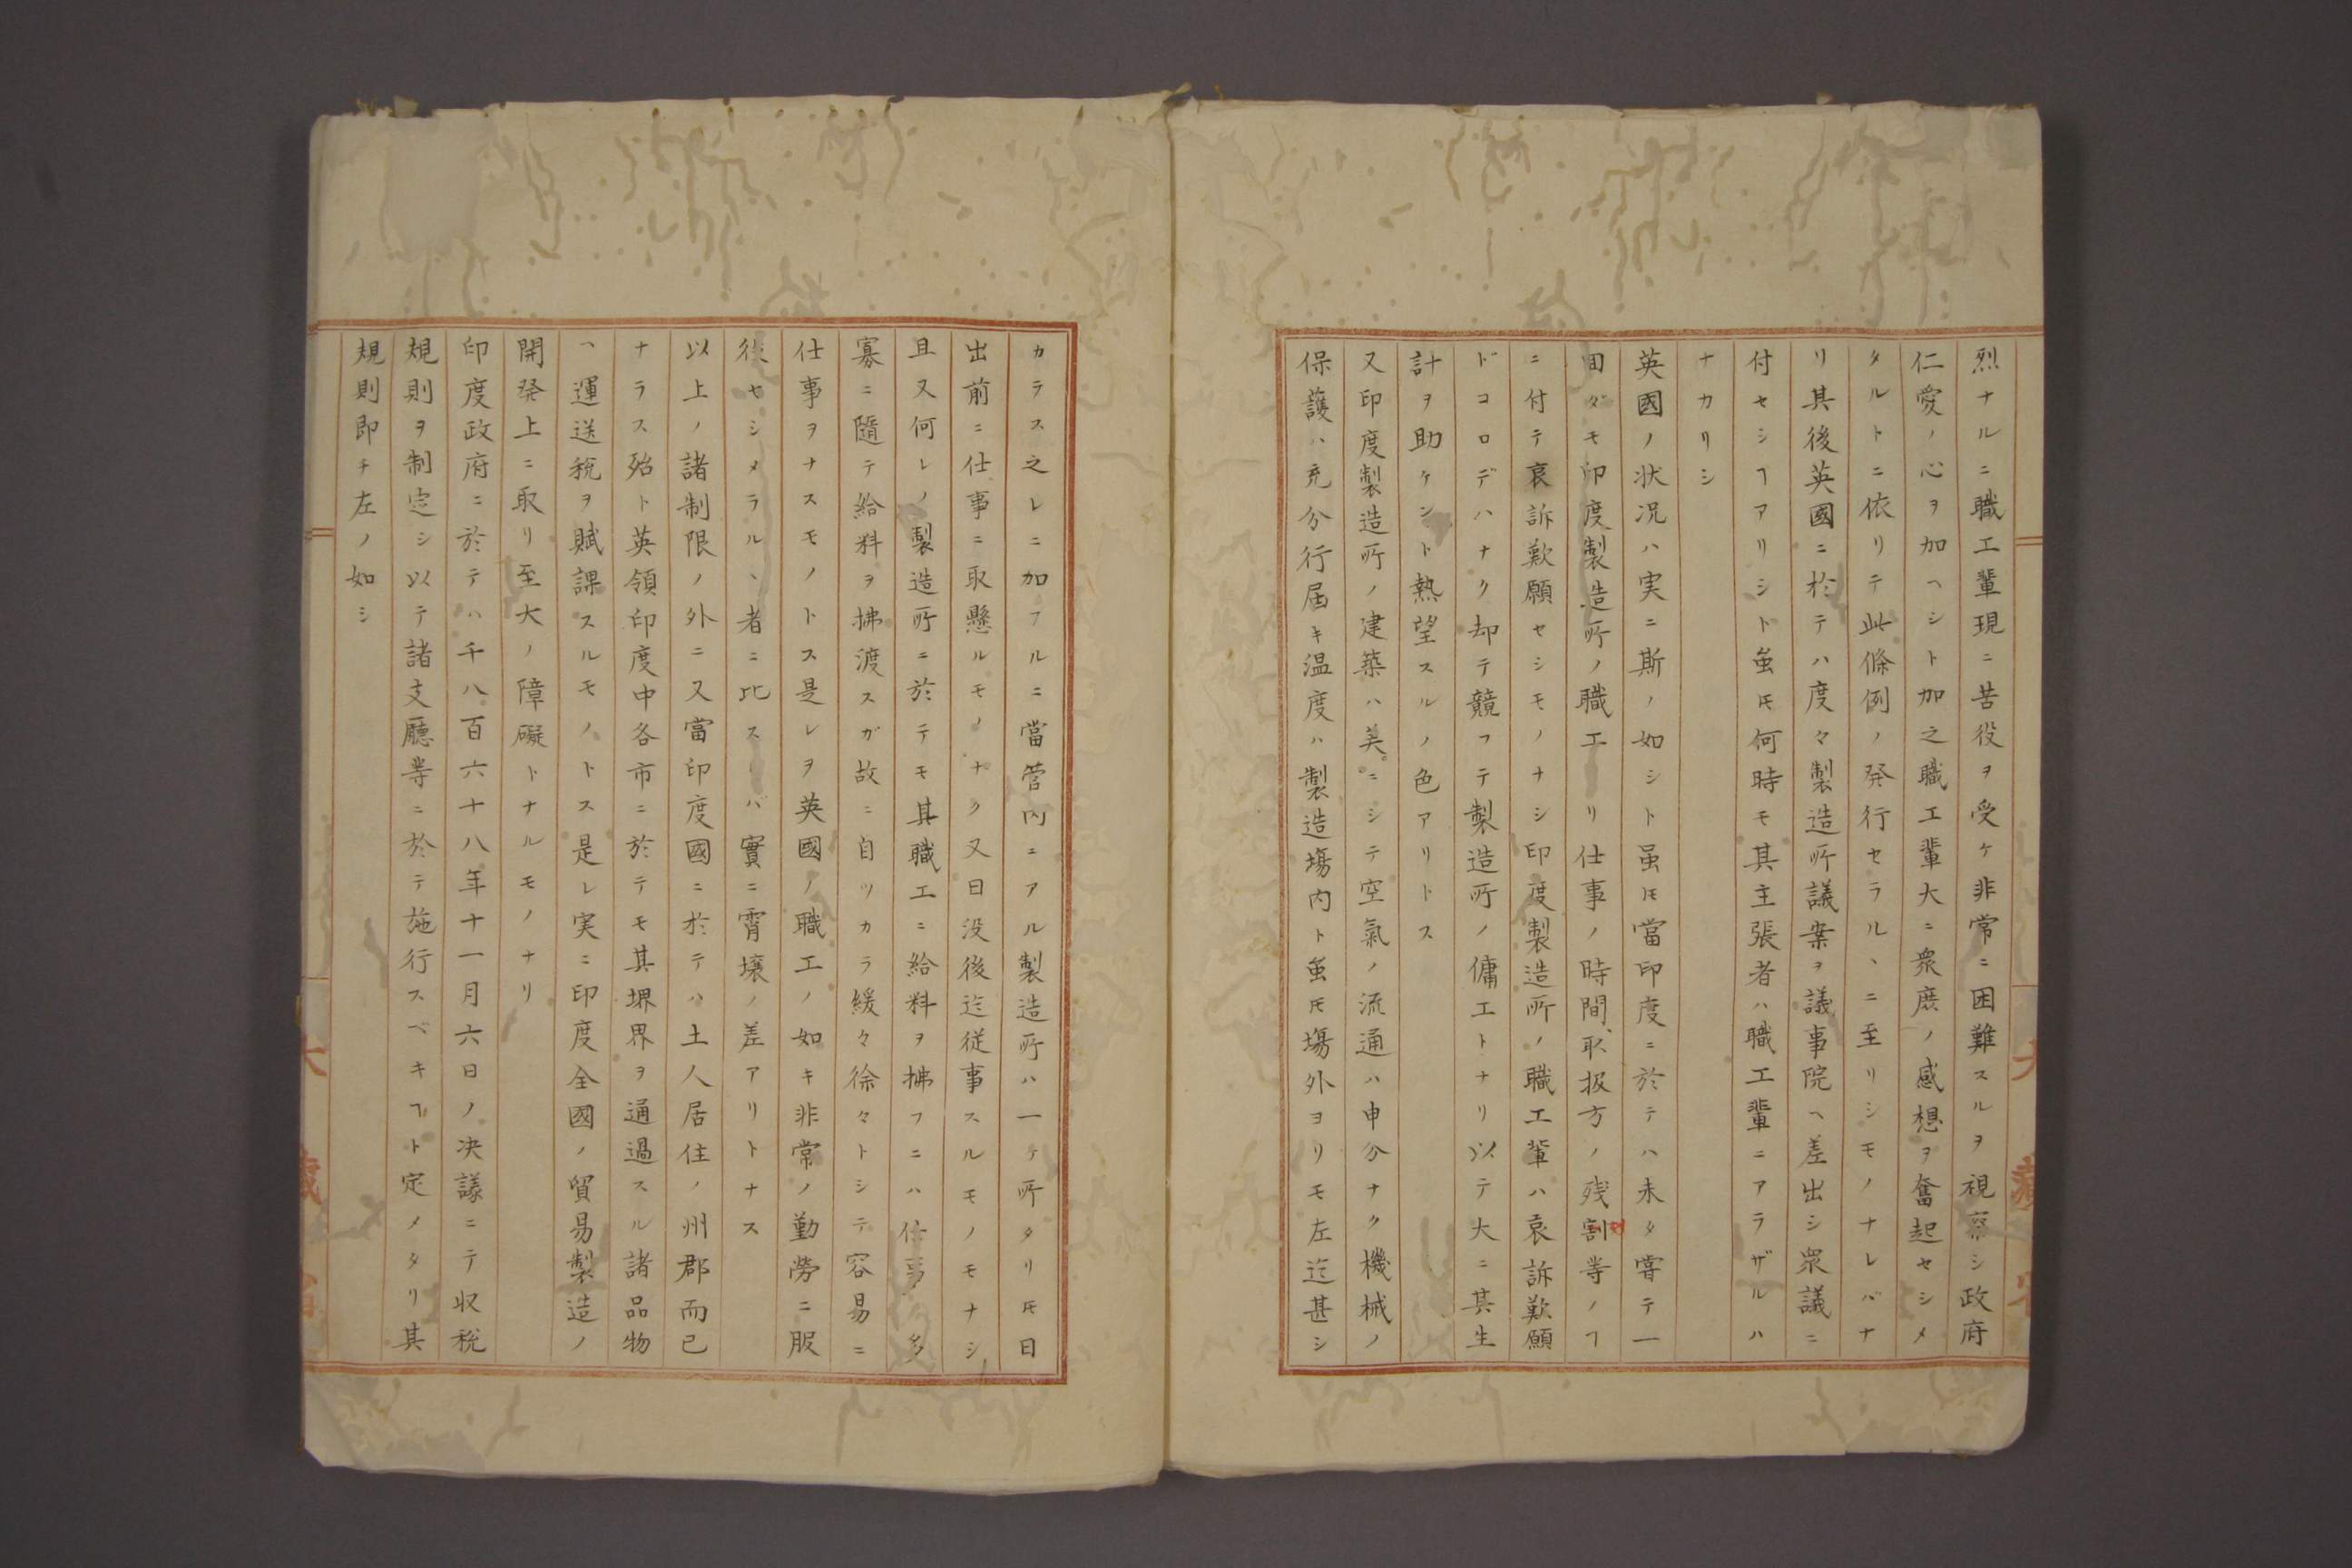 烈ナルニ職工輩現ニ苦役ヲ受ケ非常ニ困難スルヲ視察シ政府
仁愛ノ心ヲ加ヘシト加之職工輩大ニ衆庶ノ感想ヲ奮起セシメ
タルトニ依リテ此條例ノ発行セラルヽニ至リシモノナレバナ
リ其後英國ニ於テハ度々製造所議案ヲ議事院ヘ差出シ衆議ニ
付セシヿアリシト虽𪜈何時モ其主張者ハ職工輩ニアラザルハ
ナカリシ
英國ノ状况ハ実ニ斯ノ如シト虽𪜈當印度ニ於テハ未タ甞テ一
回ダモ印度製造所ノ職工ヨリ仕事ノ時間、取扱方ノ残割等ノヿ
ニ付テ哀訴歎願セシモノナシ印度製造所ノ職工輩ハ哀訴歎願
ドコロデハナク却テ競フテ製造所ノ傭工トナリ以テ大ニ其生
計ヲ助ケント熱望スルノ色アリトス
又印度製造所ノ建築ハ美ニシテ空氣ノ流通ハ申分ナク機械ノ
保護ハ充分行届キ温度ハ製造塲内ト虽𪜈塲外ヨリモ左迄甚シ
カラス之レニ加フルニ當管内ニアル製造所ハ一ケ所タリ𪜈日
出前ニ仕事ニ取懸ルモノナク又日没後迄従事スルモノモナシ
且又何レノ製造所ニ於テモ其職工ニ給料ヲ拂フニハ仕事ノ多
寡ニ隨テ給料ヲ拂渡スガ故ニ自ツカラ緩々徐々トシテ容易ニ
仕事ヲナスモノトス是レヲ英國ノ職工ノ如キ非常ノ勤勞ニ服
従セシメラルヽ者ニ比スレバ實ニ霄壌ノ差アリトナス
以上ノ諸制限ノ外ニ又當印度國ニ於テハ土人居住ノ州郡而已
ナラス殆ト英領印度中各市ニ於テモ其堺界ヲ通過スル諸品物
ヘ運送税ヲ賦課スルモノトス是レ実ニ印度全國ノ貿易製造ノ
開発上ニ取リ至大ノ障礙トナルモノナリ
印度政府ニ於テハ千八百六十八年十一月六日ノ决議ニテ収税
規則ヲ制定シ以テ諸支廳等ニ於テ施行スベキヿト定メタリ其
規則即チ左ノ如シ
大藏省